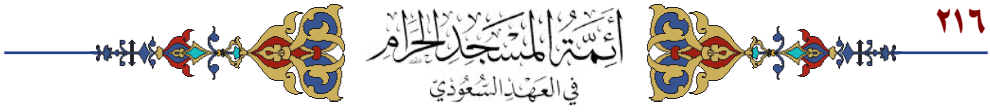 ٢١٦
أئمة المسجد الحرام
في العهد السعودي